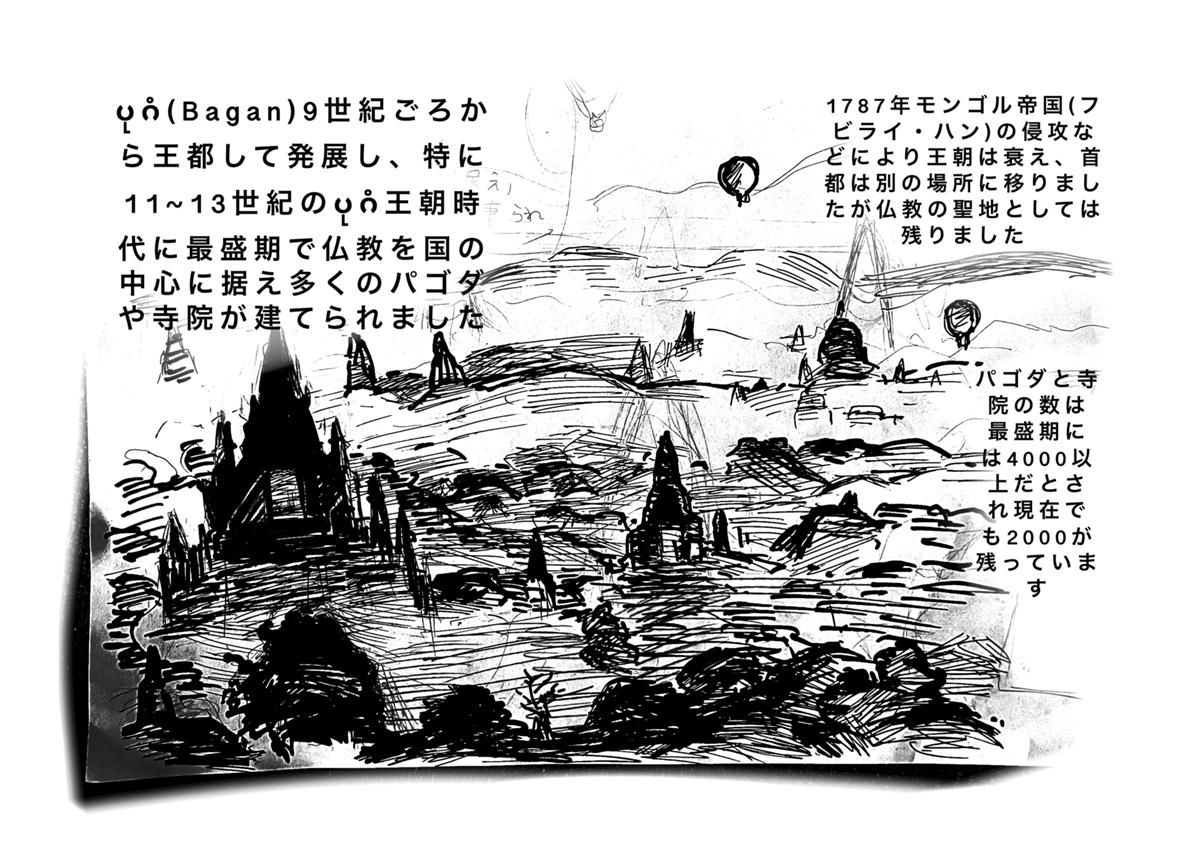 ပုဂံ(Bagan)9世紀ごろか
ら王都して発展し、特に
11~13世紀のပုဂံ王朝時
代に最盛期で仏教を国の
中心に据え多くのパゴダ
や寺院が建てられました
1787年モンゴル帝国(フ
ビライ・ハン)の侵攻な
どにより王朝は衰え、首
都は別の場所に移りまし
たが仏教の聖地としては
残りました
パゴダと寺
院の数は
最盛期に
は4000以
上だとさ
れ現在で
も2000が
残っていま
す